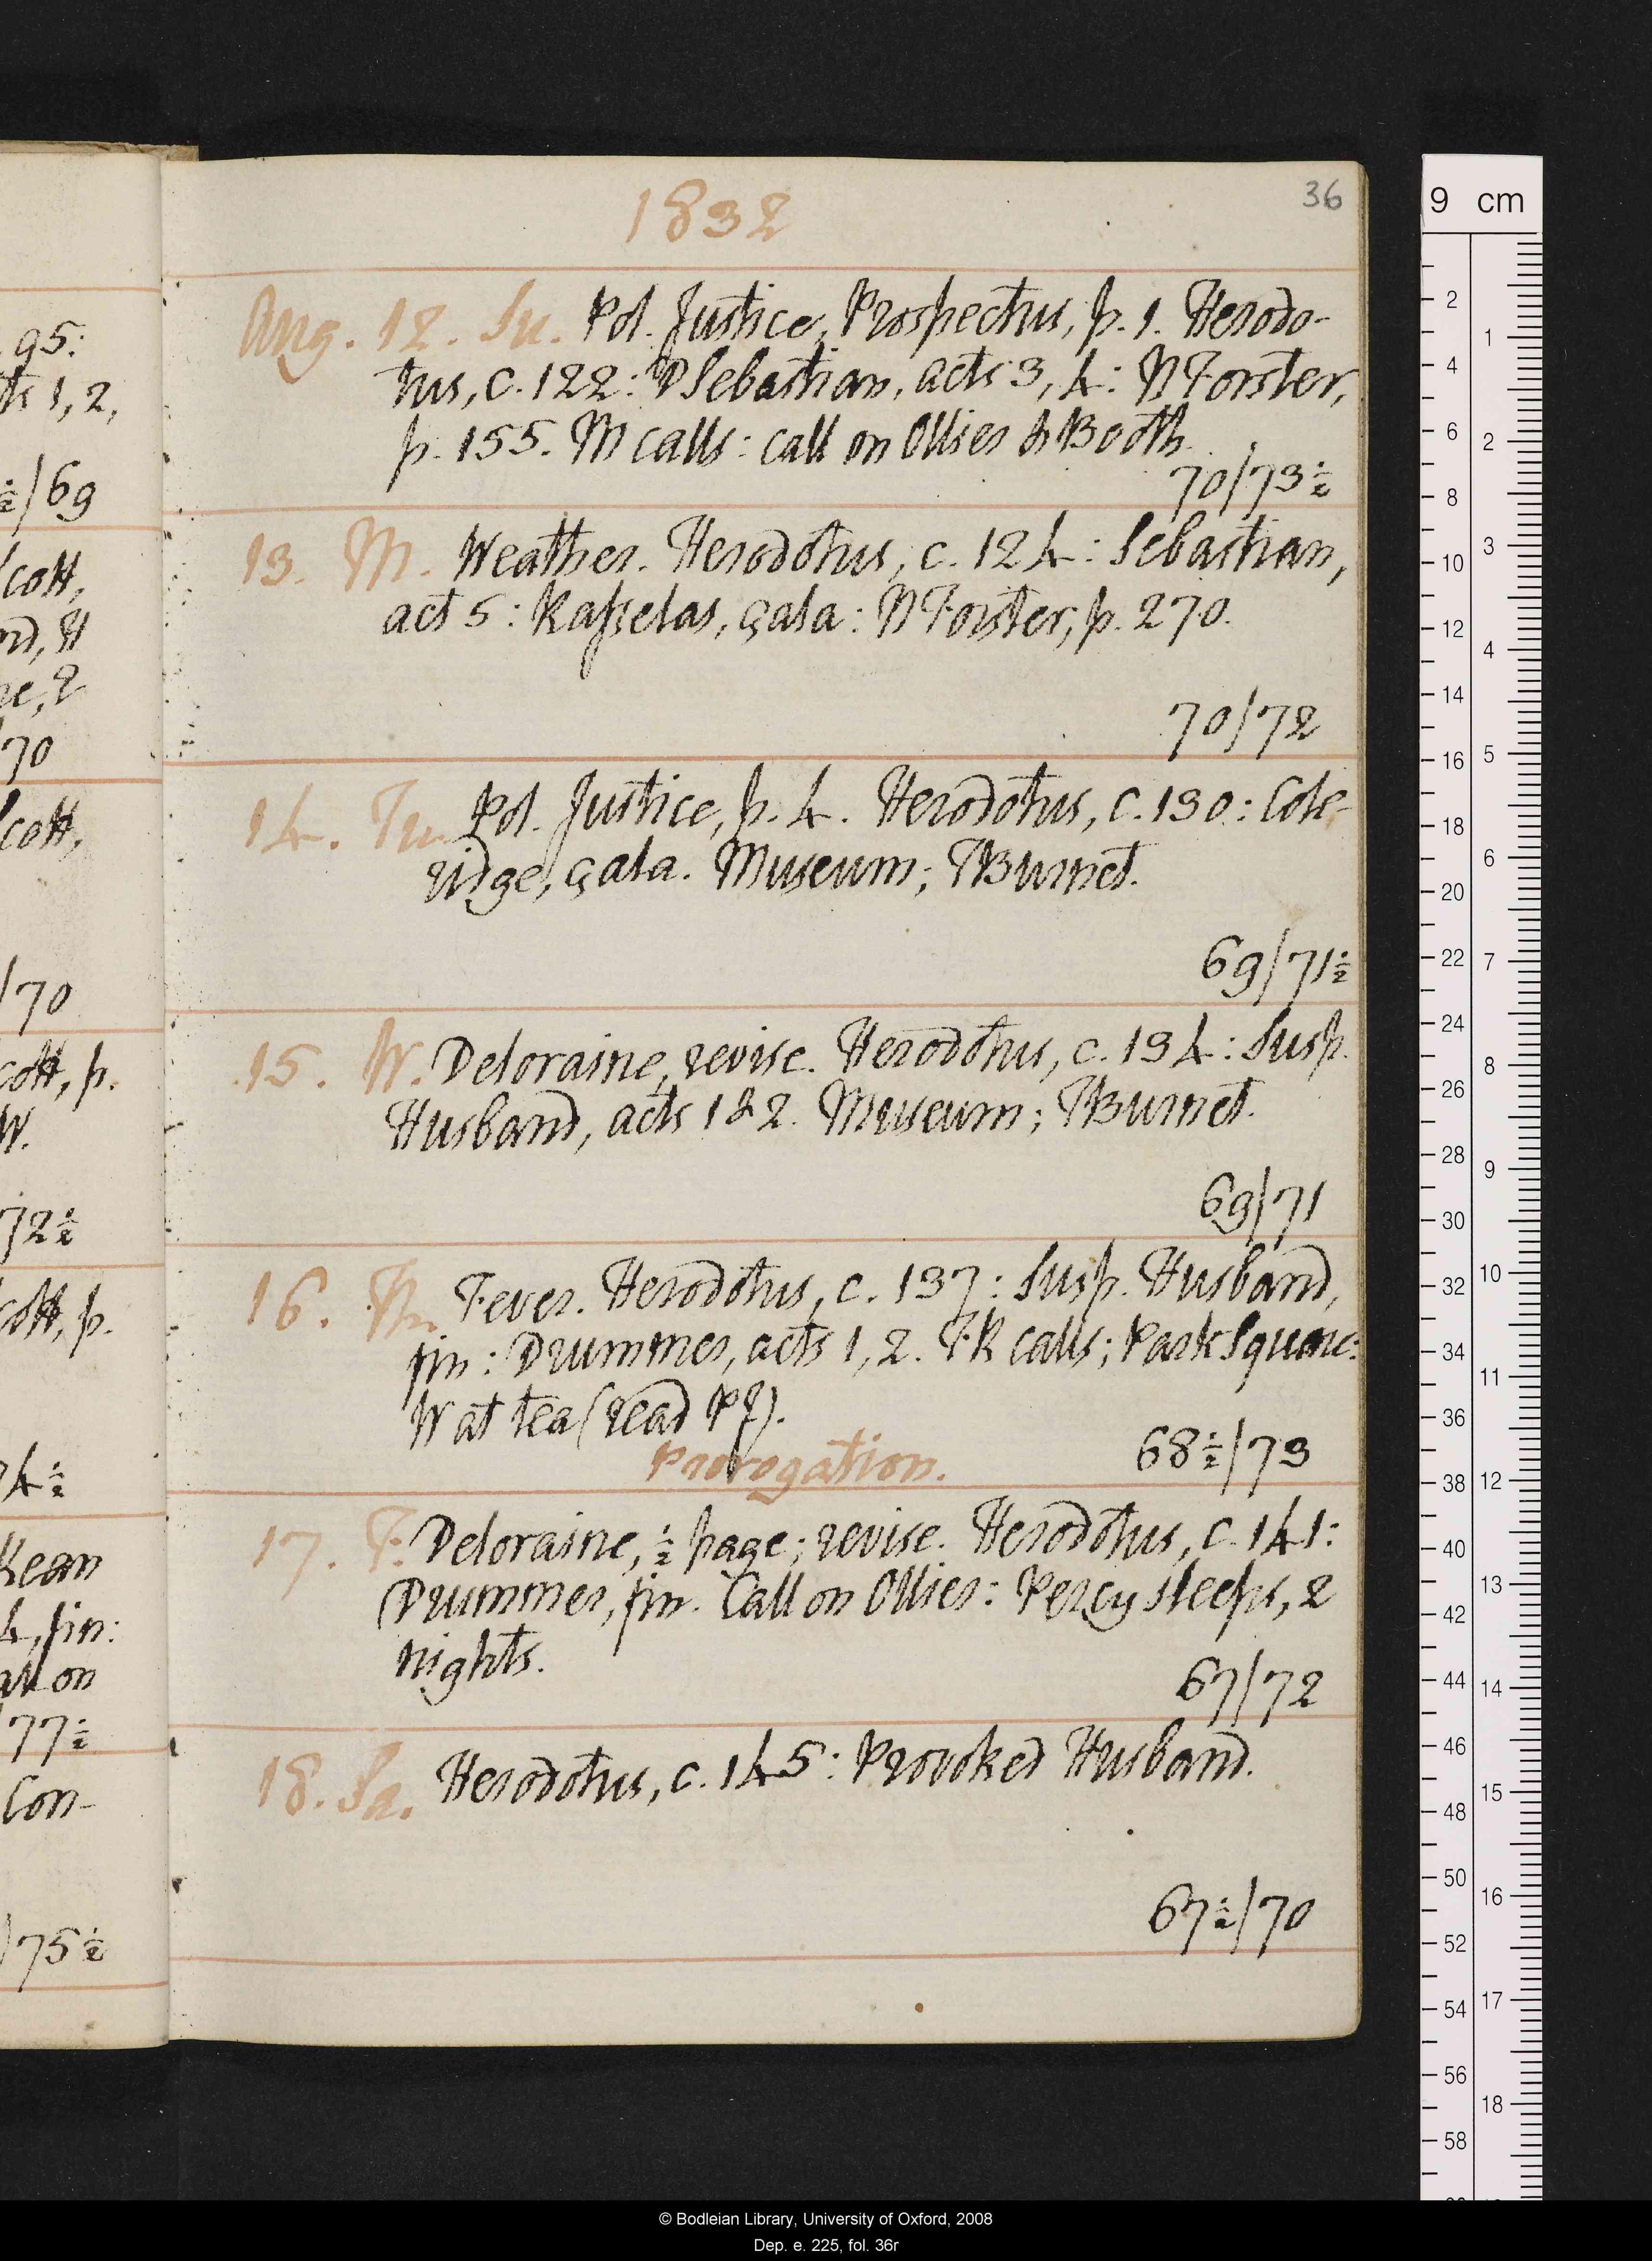 1832
36
Aug. 12. Su. Pol. Justice, Prospectus, p. 1. Herodo-
tus, c. 122: D Sebastian, acts 3, 4: N Forster,
p. 155. M calls: call on Ollier & Booth.
70/73½
13. M. Weather. Herodotus, c. 124: Sebastian,
act 5: Rasselas, çala: N Forster, p. 270.
70/72
14. Tu. Pol. Justice, p. 4. Herodotus, c. 130: Cole-
ridge, çala. Museum; TBurnet.
69/71½
15. W. Deloraine, revise. Herodotus, c. 134: Susp.
Husband, acts 1 & 2. Museum; TBurnet.
69/71
16. Th. Fever. Herodotus, c. 137: Susp. Husband,
fin: Drummer, acts 1, 2. FR calls; Park Square:
W at tea (read PJ).
Prorogation.
68½/73
17. F. Deloraine, ½ page; revise. Herodotus, c. 141:
Drummer, fin. Call on Ollier: Percy sleeps, 2
nights.
67/72
18. Sa. Herodotus, c. 145: Provoked Husband.
67½/70
95:
ts 1, 2,
½/69
cott,
nd, H
70
cott,
/70
cott, p.
W.
72½
cott, p.
4½
Kean
4, fin:
on
77½
Con-
/75½
9 cm
2
4
6
8
10
12
14
16
18
20
22
24
26
28
30
32
34
36
38
40
42
44
46
48
50
52
54
56
58
1
2
3
4
5
6
7
8
9
10
11
12
13
14
15
16
17
18
© Bodleian Library, University of Oxford, 2008
Dep. e. 225, fol. 36r